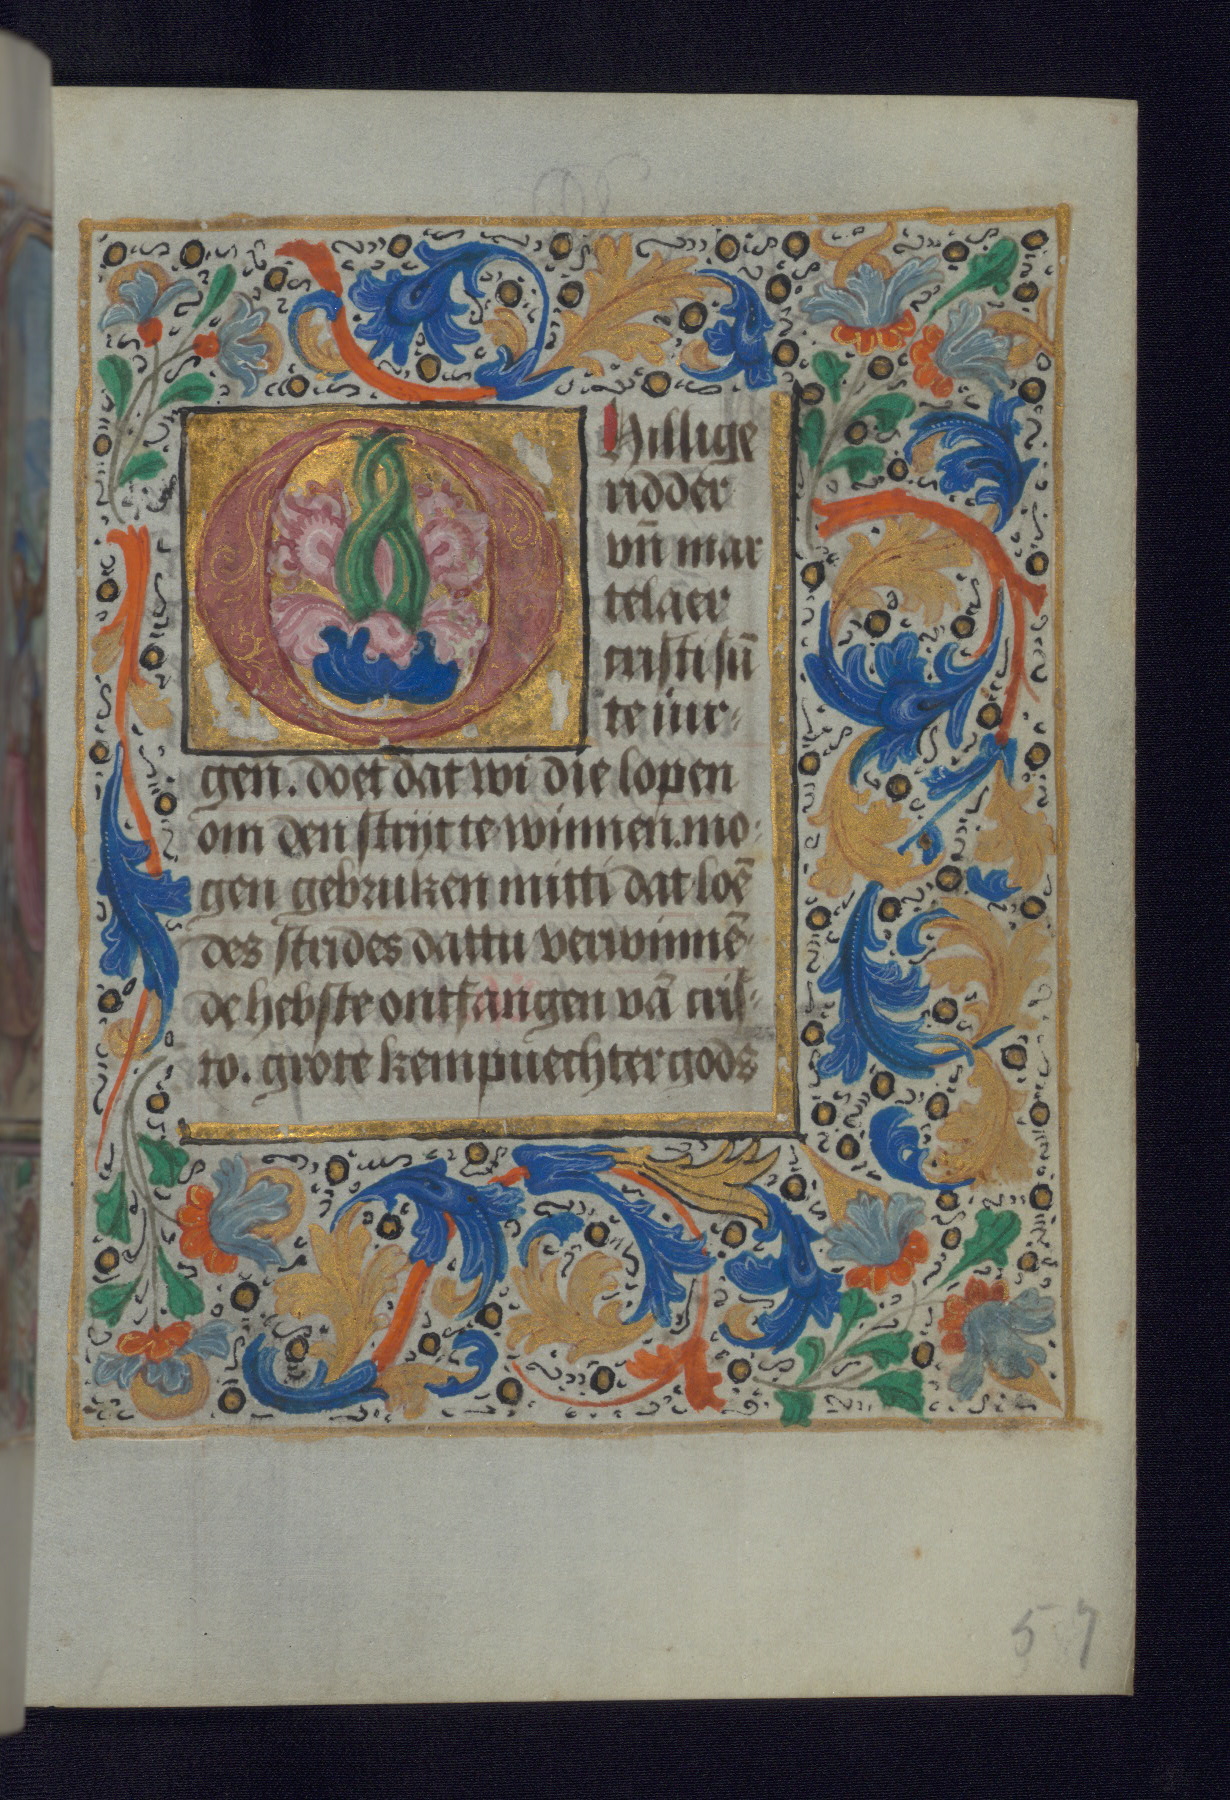 O Hillige
ridder
vn̄ mar
telaer
cristi sū
te iur⸗
gen. doet dat wi die lopen
om den strijt te winnen. mo⸗
gen gebruken mitti dat loē
des strides dattu verwinnē⸗
de hebste ontfangen vā cris⸗
to. grote kempuechter gods
57